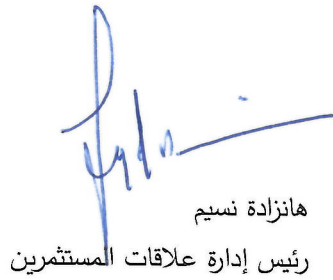 هانزادة نسيم
رئيس إدارة علاقات المستثمرين